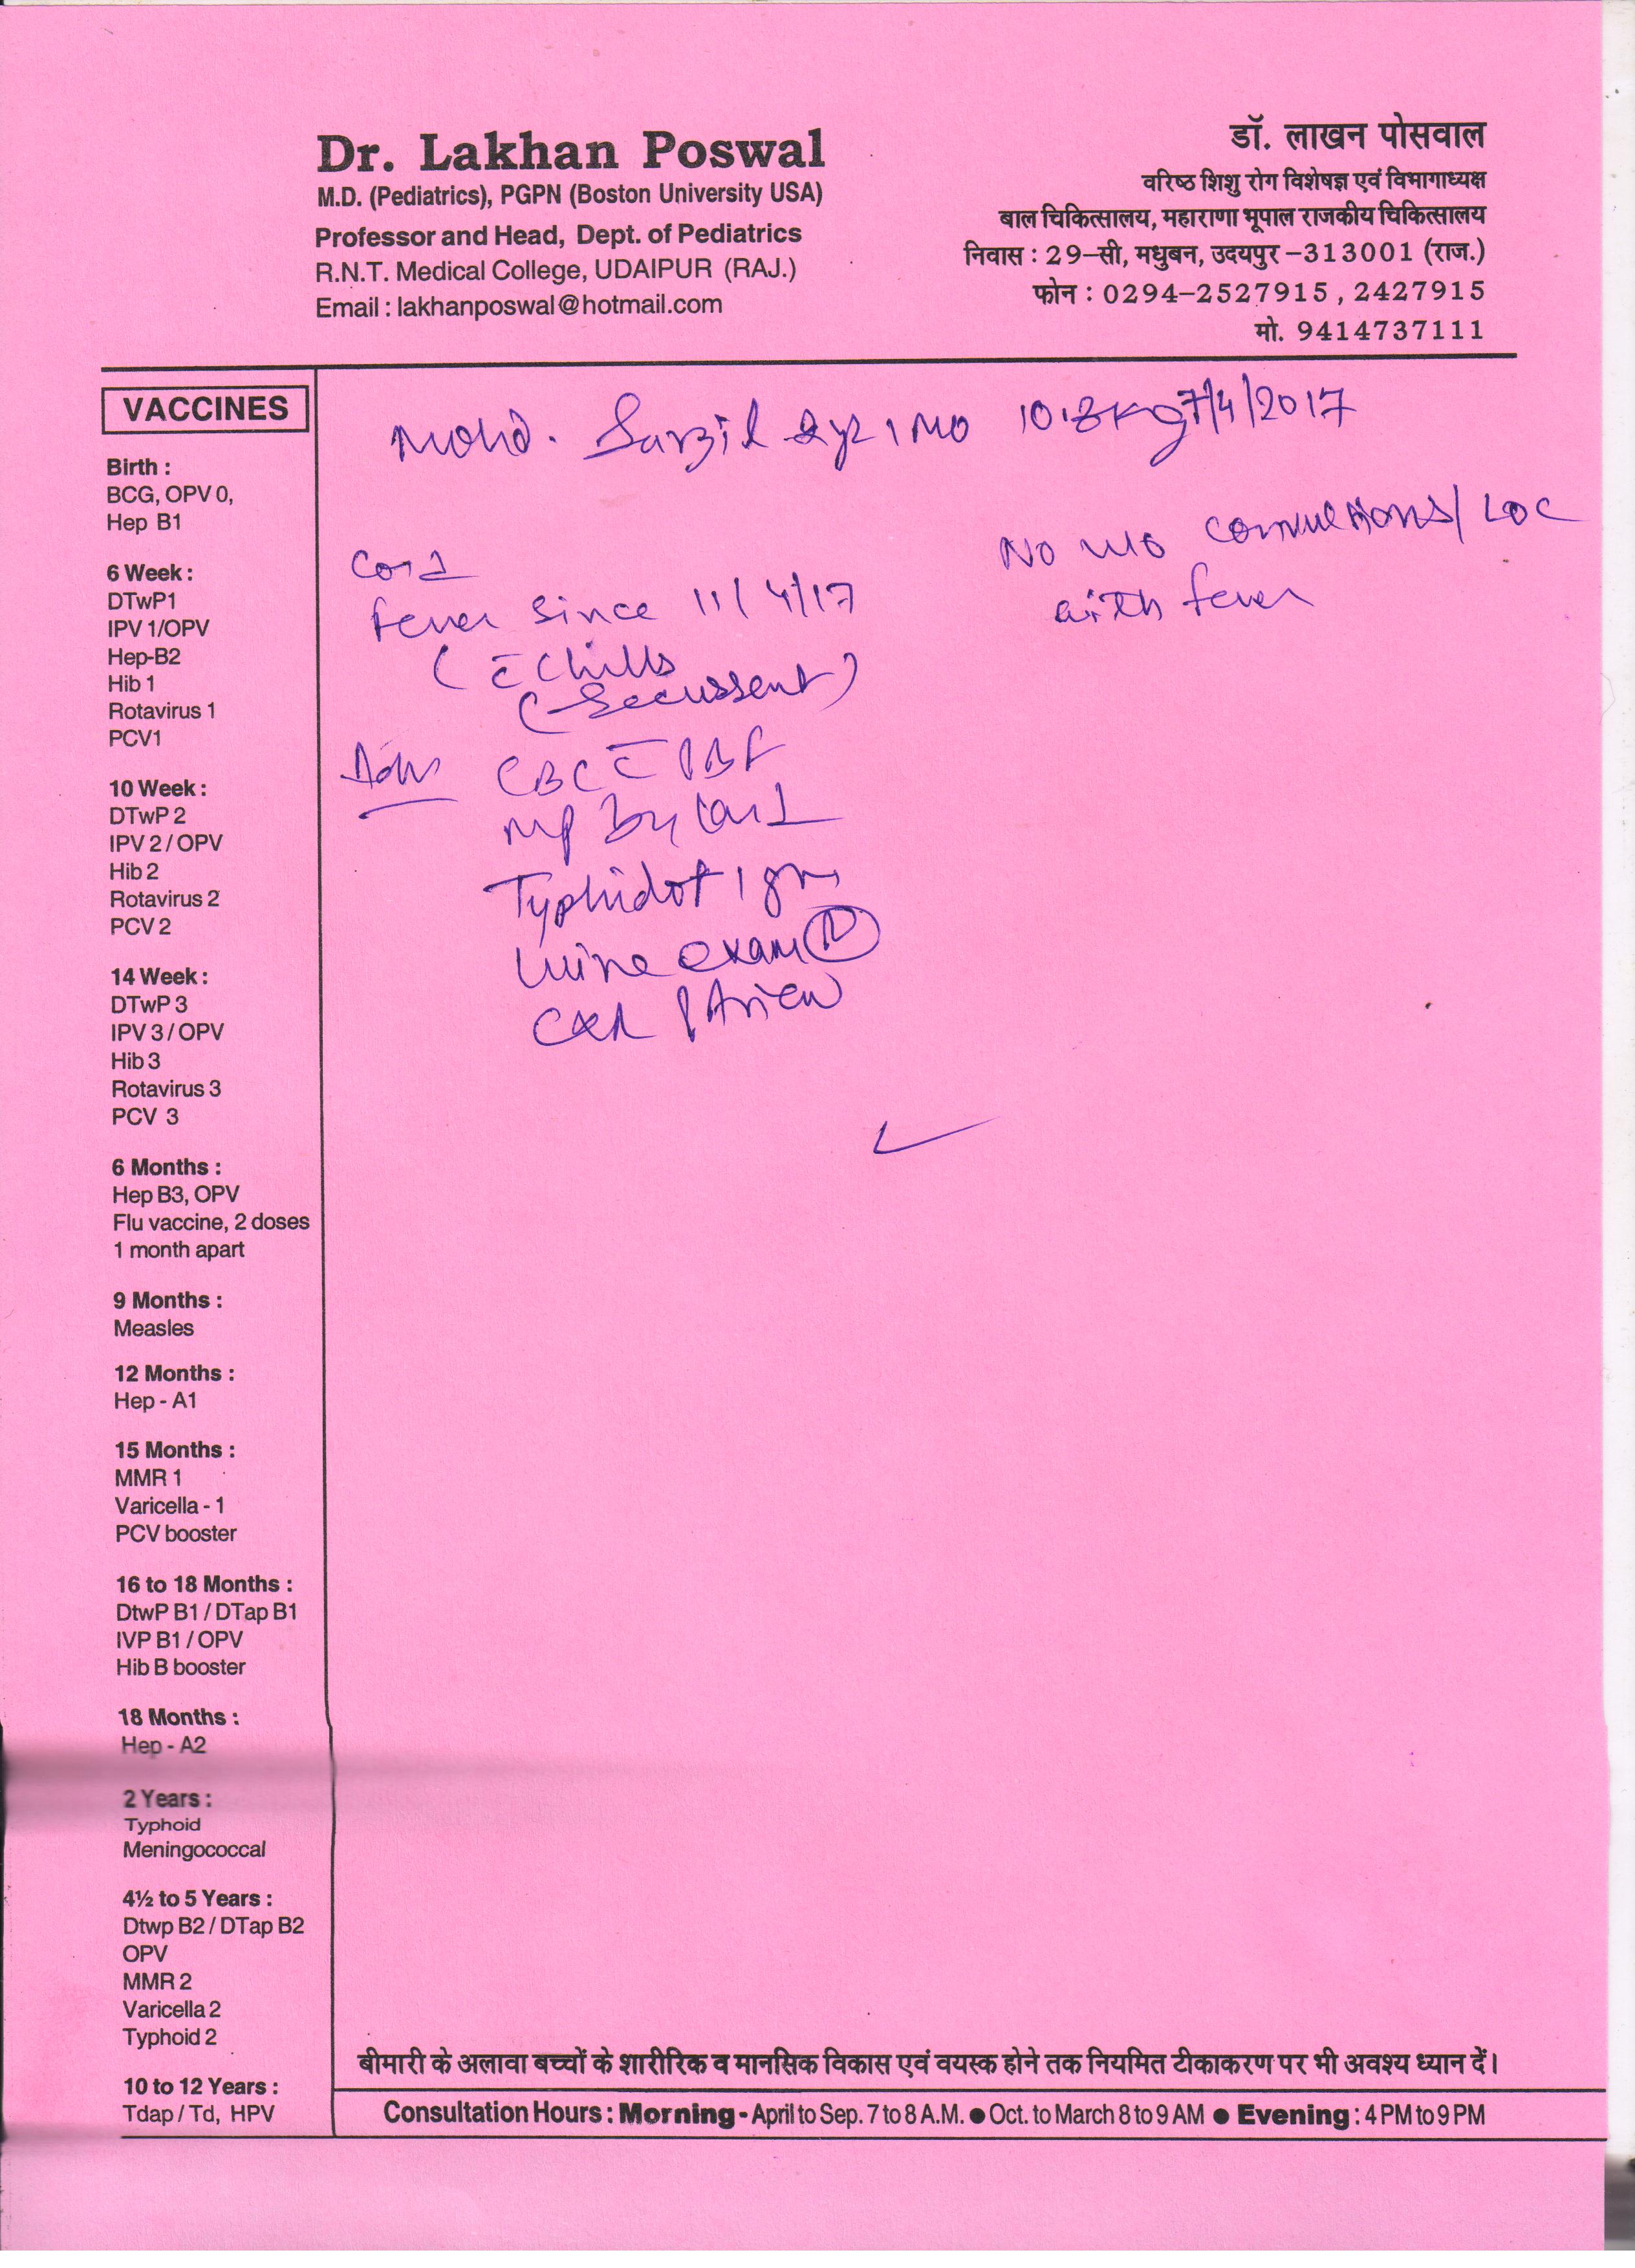 Dr. Lakhan Poswal
M.D. (Pediatrics), PGPN (Boston University USA)
Professor and Head, Dept. of Pediatrics
R.N.T. Medical College, UDAIPUR (RAJ.)
Email : lakhanposwal@hotmail.com
डॉ. लाखन पोसवाल
वरिष्ठ शिशु रोग विशेषज्ञ एवं विभागाध्यक्ष
बाल चिकित्सालय, महाराणा भूपाल राजकीय चिकित्सालय
निवास : 29-सी, मधुबन, उदयपुर -313001 (राज.)
फोन : 0294-2527915 , 2427915
मो. 9414737111
VACCINES
Birth :
BCG, OPV 0,
Hep B1
6 Week :
DTwP1
IPV 1/OPV
Hep-B2
Hib 1
Rotavirus 1
PCV1
10 Week :
DTwP 2
IPV 2 / OPV
Hib 2
Rotavirus 2
PCV 2
14 Week :
DTwP 3
IPV 3 / OPV
Hib 3
Rotavirus 3
PCV 3
6 Months :
Hep B3, OPV
Flu vaccine, 2 doses
1 month apart
9 Months :
Measles
12 Months :
Hep - A1
15 Months :
MMR 1
Varicella - 1
PCV booster
16 to 18 Months :
DtwP B1 / DTap B1
IVP B1 / OPV
Hib B booster
18 Months :
Hep - A2
2 Years :
Typhoid
Meningococcal
4½ to 5 Years :
Dtwp B2 / DTap B2
OPV
MMR 2
Varicella 2
Typhoid 2
10 to 12 Years :
Tdap / Td, HPV
Mohd. 1 Mo 7/4/2017
Cold
fever since 11/4/17
(c̄ Chills
No H/O convulsions/ LOC
with fever
CBC c̄ PBF
MP by Card
Typhidot IgM
Urine exam (N)
CXR PA view
बीमारी के अलावा बच्चों के शारीरिक व मानसिक विकास एवं वयस्क होने तक नियमित टीकाकरण पर भी अवश्य ध्यान दें।
Consultation Hours : Morning - April to Sep. 7 to 8 A.M. ● Oct. to March 8 to 9 AM ● Evening : 4 PM to 9 PM